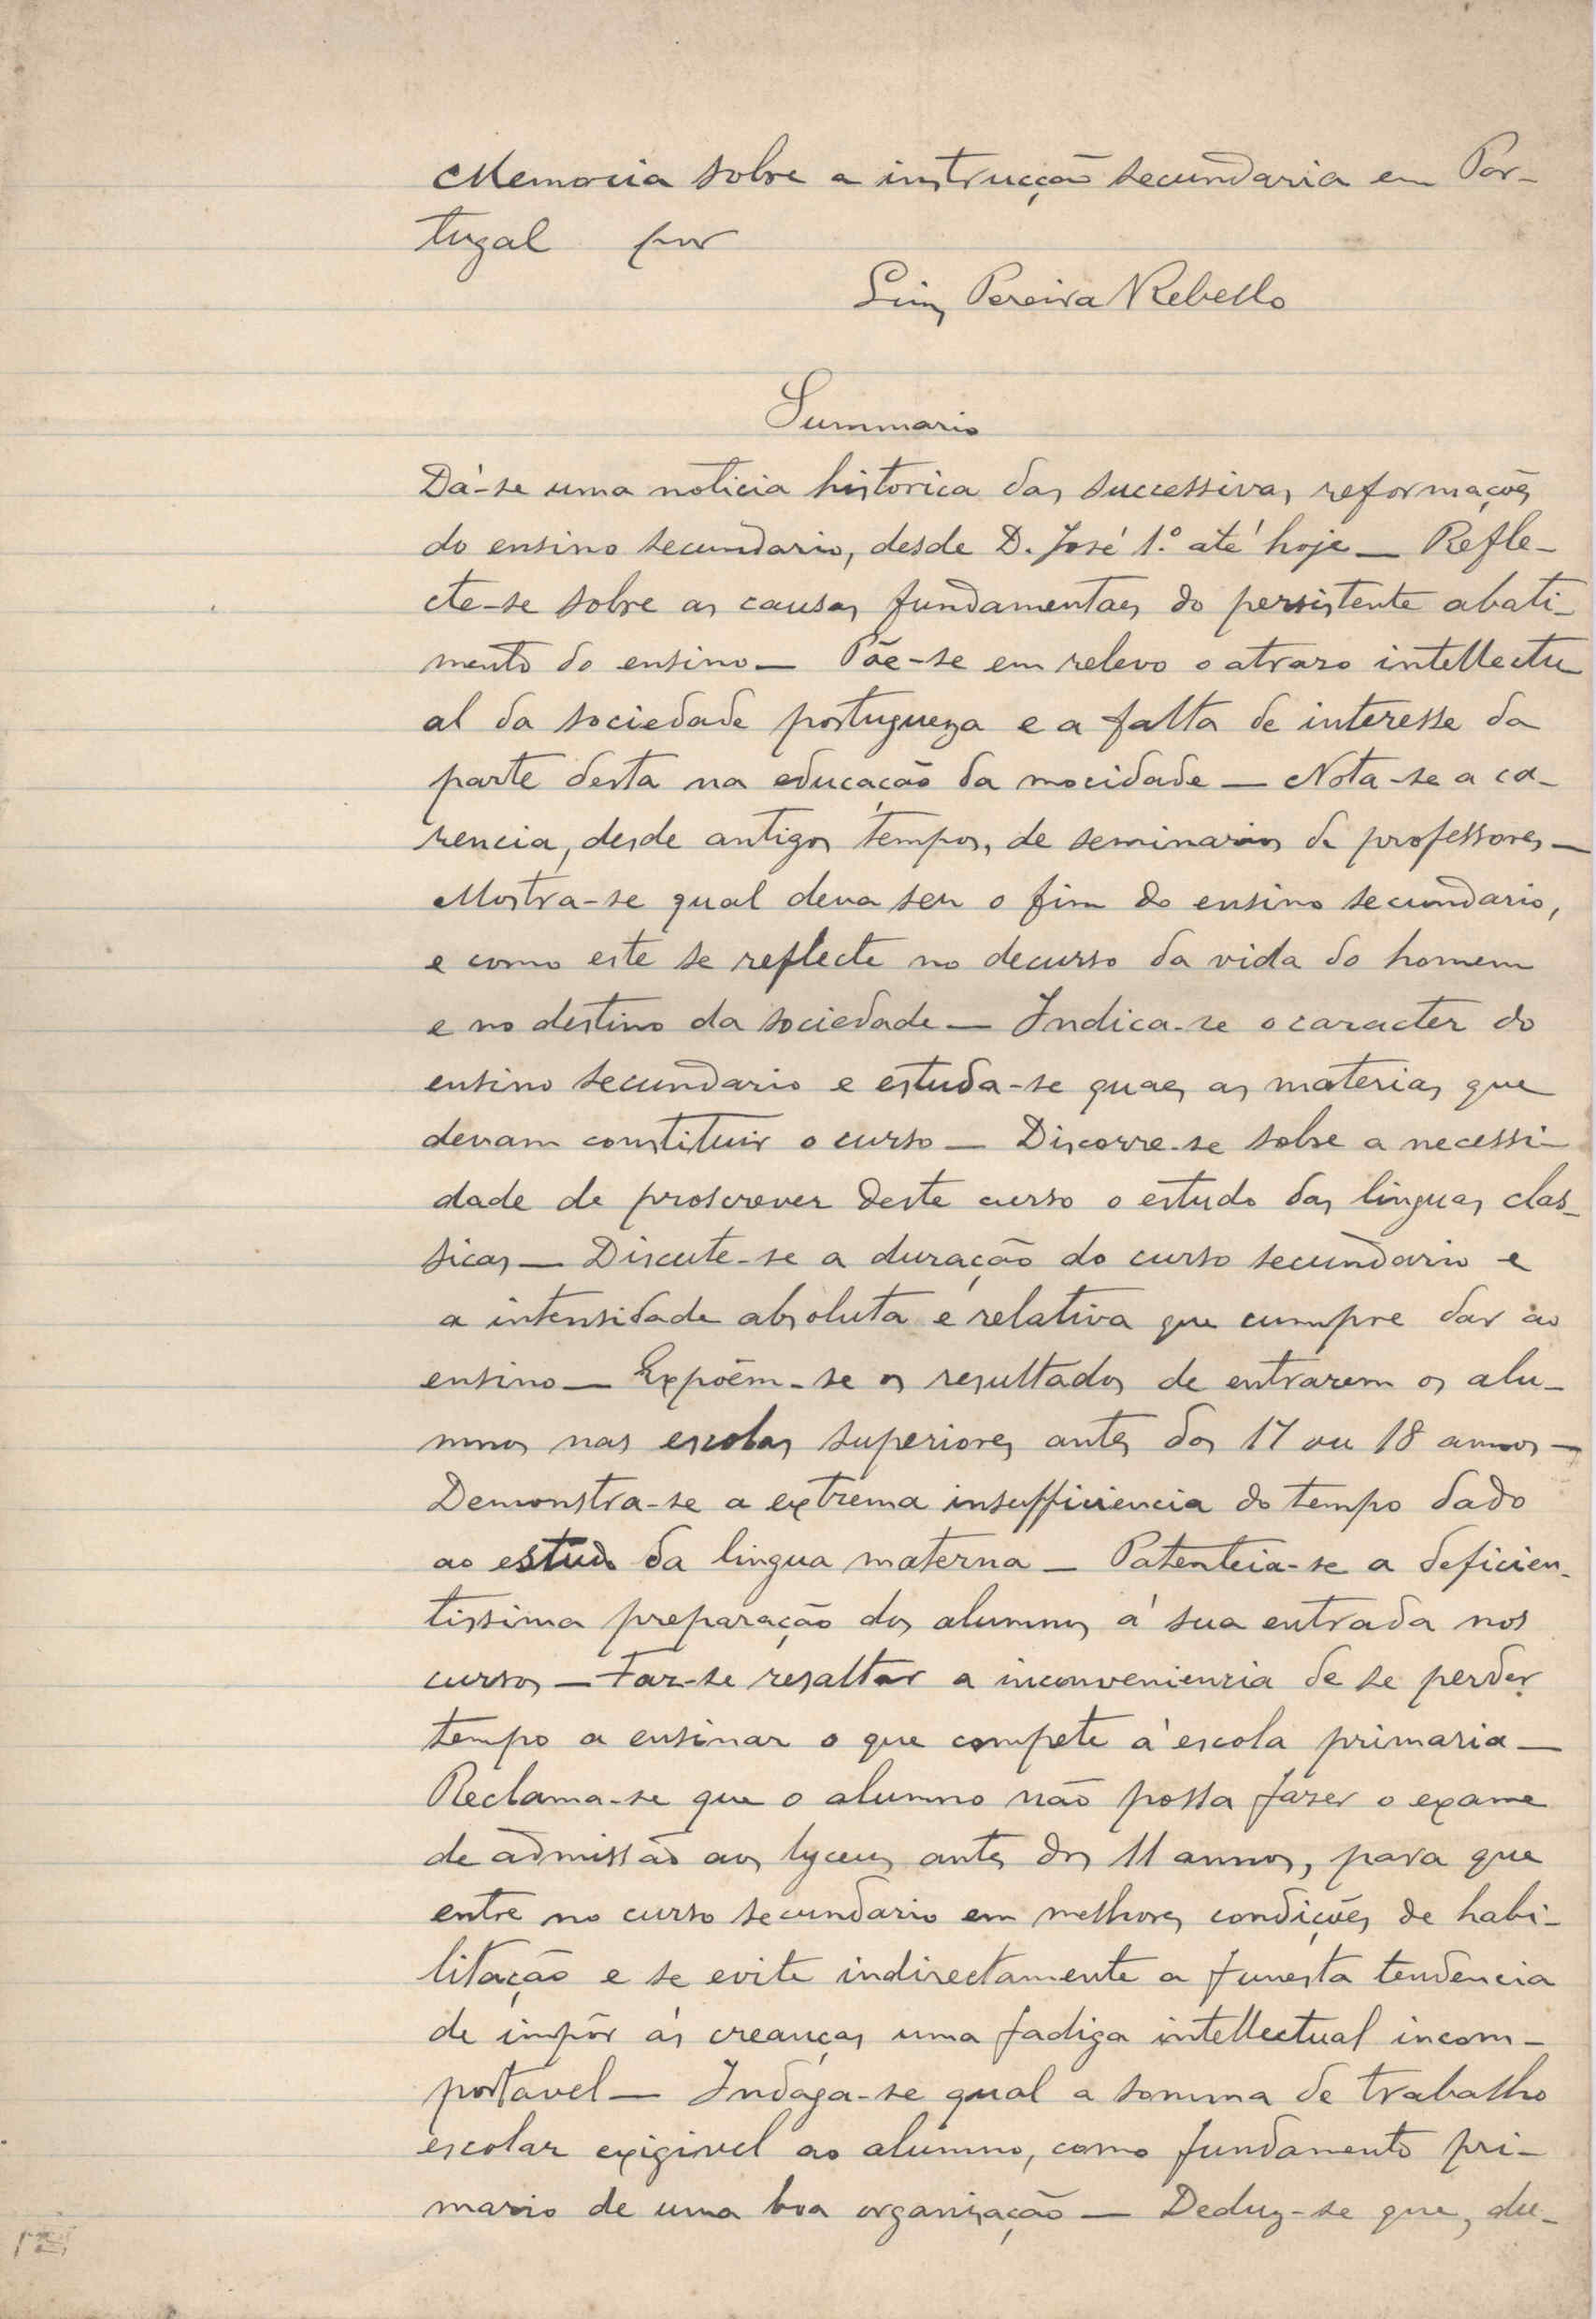 Memoria sobre a instrucção secundaria em Por-
tugal por
Luiz Pereira Rebello
Summario
Dá-se uma noticia historica das successivas reformações
do ensino secundario, desde D. José 1.º até hoje — Refle-
cte-se sobre as causas fundamentaes do persistente abati-
mento do ensino — Põe-se em relevo o atrazo intellectu
al da sociedade portugueza e a falta de interesse da
parte desta na educação da mocidade — Nota-se a ca-
rencia, desde antigos tempos, de seminarios de professores —
Mostra-se qual deva ser o fim do ensino secundario,
e como este se reflecte no decurso da vida do homem
e no destino da sociedade — Indica-se o caracter do
ensino secundario e estuda-se quaes as materias que
devam constituir o curso — Discorre-se sobre a necessi-
dade de proscrever deste curso o estudo das linguas clas-
sicas — Discute-se a duração do curso secundario e
a intensidade absoluta e relativa que cumpre dar ao
ensino — Expõem-se os resultados de entrarem os alu-
mnos nas escolas superiores antes dos 17 ou 18 annos —
Demonstra-se a extrema insufficiencia do tempo dado
ao estudo da lingua materna — Patenteia-se a deficien-
tissima preparação dos alumnos á sua entrada nos
cursos — Faz-se resaltar a inconveniencia de se perder
tempo a ensinar o que compete á escola primaria —
Reclama-se que o alumno não possa fazer o exame
de admissão aos lyceus antes dos 11 annos, para que
entre no curso secundario em melhores condições de habi-
litação e se evite indirectamente a funesta tendencia
de impôr ás creanças uma fadiga intellectual incom-
portavel — Indaga-se qual a somma de trabalho
escolar exigivel ao alumno, como fundamento pri-
mario de uma boa organização — Deduz-se que, du-